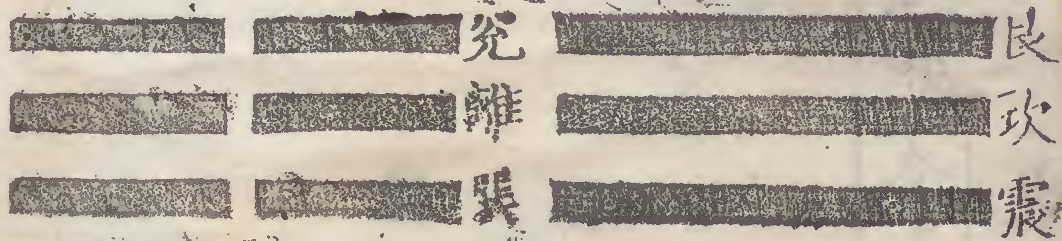 艮坎震
兊離巽